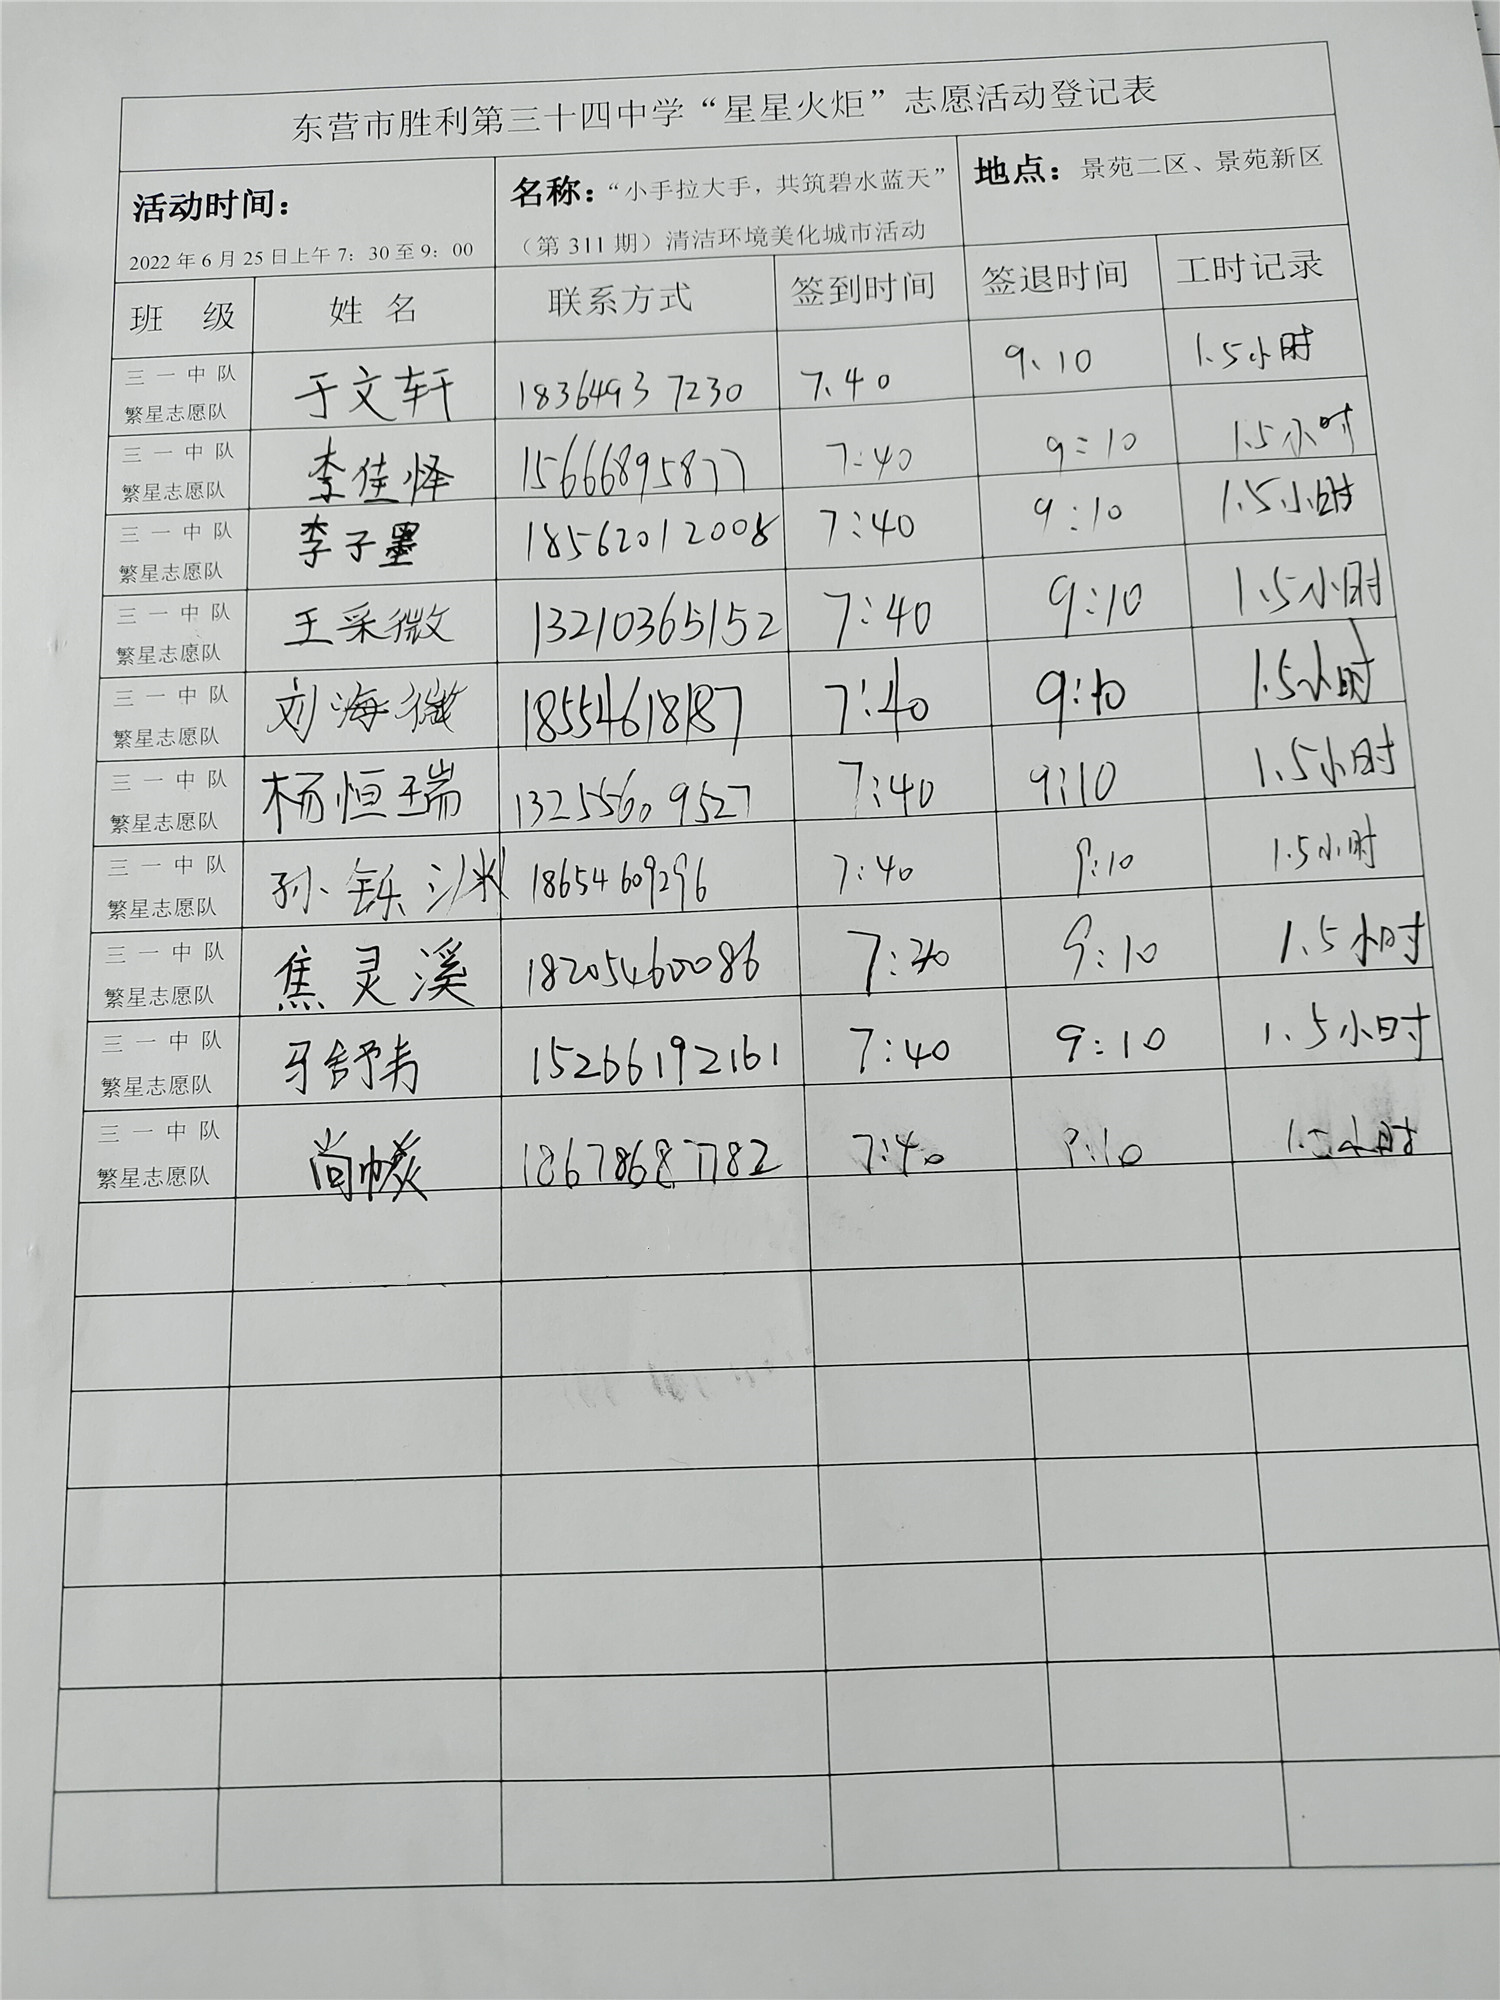 东营市胜利第三十四中学“星星火炬”志愿活动登记表
活动时间：
2022年6月25日上午7：30至9：00
名称：“小手拉大手，共筑碧水蓝天”
（第311期）清洁环境美化城市活动
地点：景苑二区、景苑新区
班 级 姓 名 联系方式 签到时间 签退时间 工时记录
三一中队
繁星志愿队
于文轩 18364937230 7:40 9:10 1.5小时
三一中队
繁星志愿队
李佳怿 15666895877 7:40 9:10 1.5小时
三一中队
繁星志愿队
李子墨 18562012008 7:40 9:10 1.5小时
三一中队
繁星志愿队
王采微 13210365152 7:40 9:10 1.5小时
三一中队
繁星志愿队
刘海微 18554618187 7:40 9:10 1.5小时
三一中队
繁星志愿队
杨恒瑞 13255609527 7:40 9:10 1.5小时
三一中队
繁星志愿队
孙铄 18654609296 7:40 9:10 1.5小时
三一中队
繁星志愿队
焦灵溪 18205460086 9:10 1.5小时
三一中队
繁星志愿队
马舒卉 15266192161 7:40 9:10 1.5小时
三一中队
繁星志愿队
尚 18678687782 7:40 9:10 1.5小时